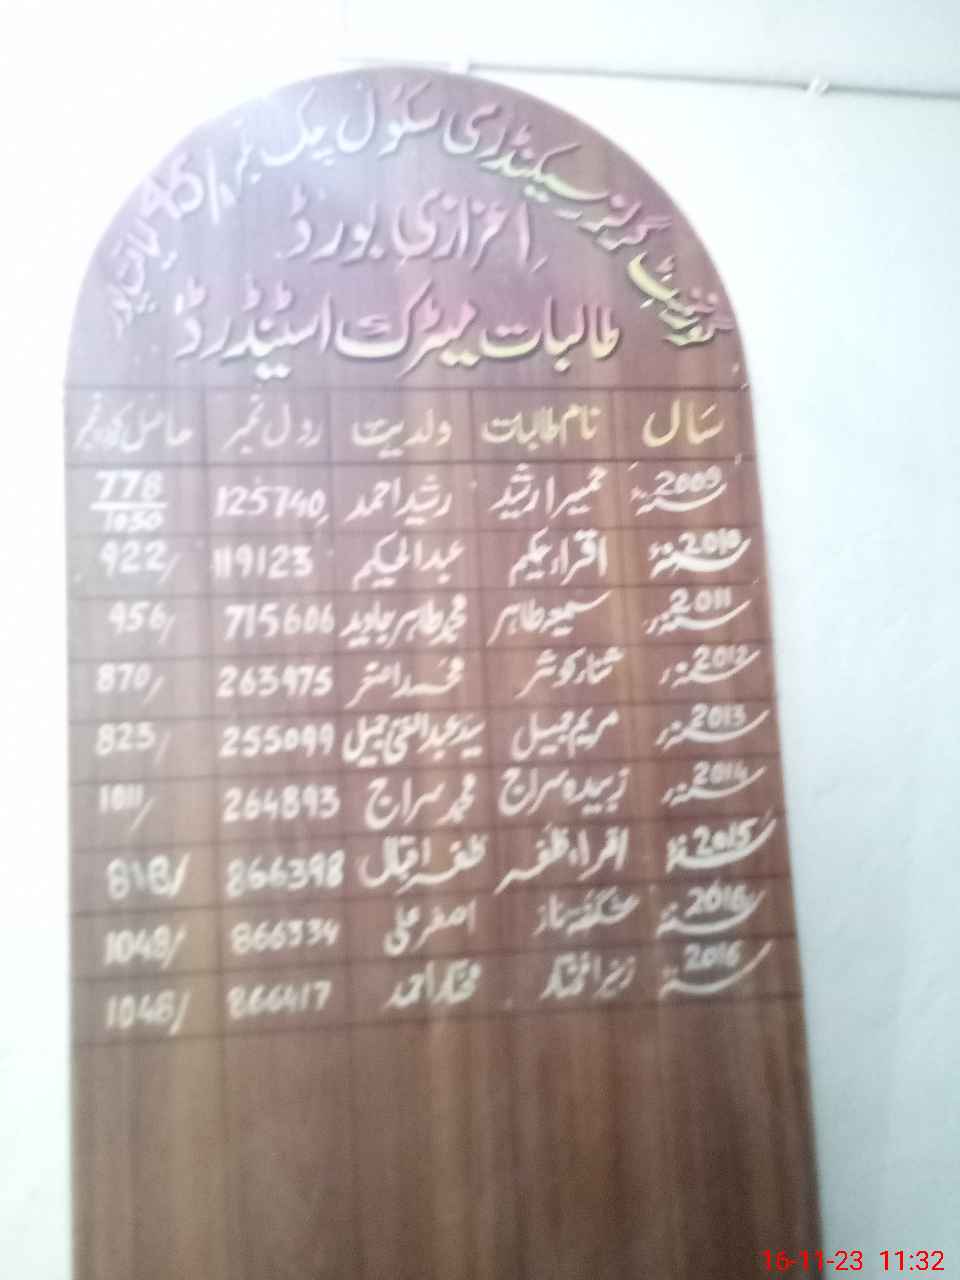 گورنمنٹ گرلز سیکنڈری سکول چک نمبر 45/
اعزازی بورڈ
طالبات میٹرک اسٹینڈرڈ
سال نام طالبات ولدیت رول نمبر حاصل کردہ نمبر
2009 حمیرا رشید رشید احمد 125740 778/1050
2010 اقراء حکیم عبدالحکیم 119123 922/
2011 سمیعہ طاہر محمد طاہر جاوید 715606 956/
2012 ثناء کوثر محمد اصغر 263975 870/
2013 مریم جمیل سید عبدالغنی جمیل 255099 825/
2014 زبیدہ سراج محمد سراج 264893 1011/
2015 اقراء ظفر ظفر اقبال 866398 818/
2016 شگفتہ ناز اصغر علی 866334 1048/
2016 مختار احمد 866417 1048/
16-11-23 11:32